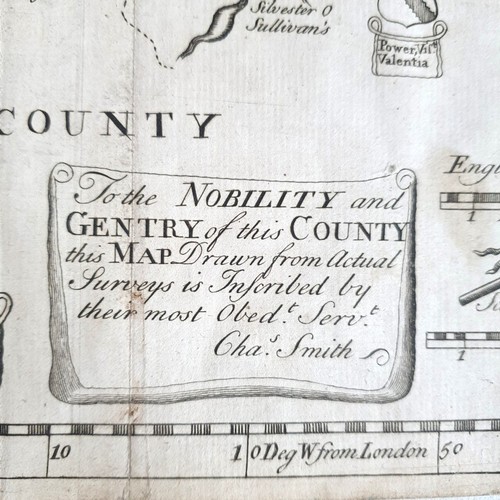 Silvester O
Sullivan's
Power, Vis.t
Valentia
COUNTY
To the NOBILITY and
GENTRY of this COUNTY
this MAP Drawn from Actual
Surveys is Inſcribed by
their most Obed.t Serv.t
Cha.s Smith
1
1
10
10 Deg W from London
50